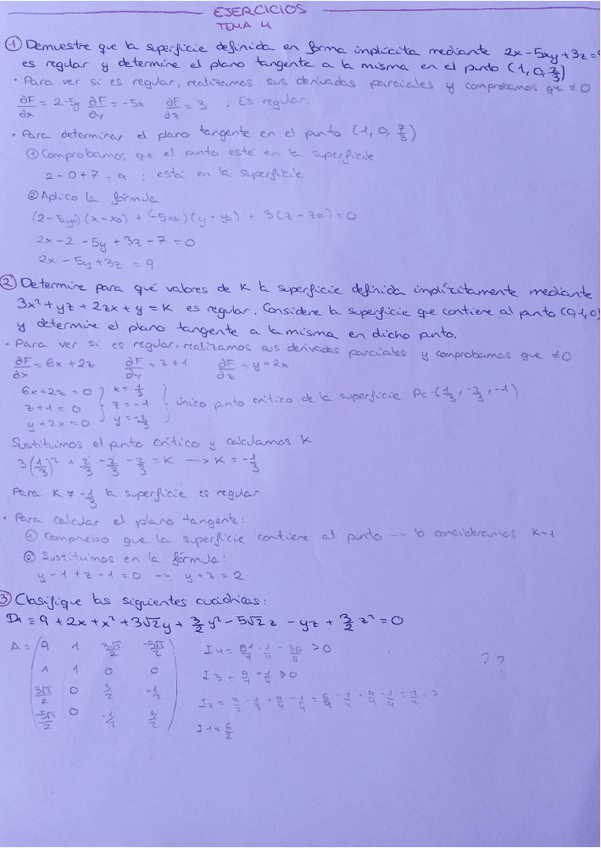 EJERCICIOS
TEMA 4
① Demuestre que la superficie definida en forma implícita mediante 2x-5xy+3z=9
es regular y determine el plano tangente a la misma en el punto (1,0,7/3)
• Para ver si es regular, realizamos sus derivadas parciales y comprobamos que ≠0
∂F/∂x = 2-5y ∂F/∂y = -5x ∂F/∂z = 3 ; Es regular.
• Para determinar el plano tangente en el punto (1, 0, 7/3)
① Comprobamos que el punto esté en la superficie
2-0+7=9 ; está en la superficie
② Aplico la fórmula
(2-5y₀)(x-x₀) + (-5x₀)(y-y₀) + 3(z-z₀)=0
2x-2-5y+3z-7=0
2x-5y+3z=9
② Determine para qué valores de K la superficie definida implícitamente mediante
3x²+yz+2zx+y=K es regular. Considere la superficie que contiene al punto (0,1,0)
y determine el plano tangente a la misma en dicho punto.
• Para ver si es regular, realizamos sus derivadas parciales y comprobamos que ≠0
∂F/∂x = 6x+2z ∂F/∂y = z+1 ∂F/∂z = y+2x
6x+2z=0 } x=1/3 } único punto crítico de la superficie Pc(1/3, -2/3, -1)
z+1=0 } z=-1
y+2x=0 } y=-2/3
Sustituimos el punto crítico y calculamos K
3(1/3)² + 2/3 - 2/3 - 2/3 = K → K = -1/3
Para K ≠ -1/3 la superficie es regular
• Para calcular el plano tangente:
① Compruebo que la superficie contiene al punto → lo consideramos K=1
② Sustituimos en la fórmula:
y-1+z-1=0 → y+z=2
③ Clasifique las siguientes cuádricas:
9+2x+x²+3√2y+3/2y²-5√2z-yz+3/2z²=0
A = ( 9 1 3√2/2 -5√2/2
1 1 0 0
3√2/2 0 3/2 -1/2
-5√2/2 0
>0
>0
??